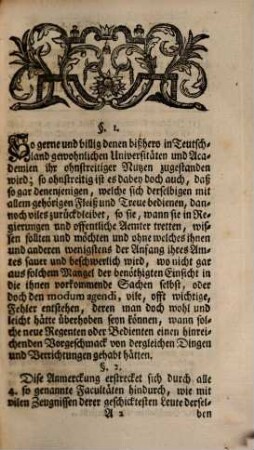 §. 1.
So gerne und billig denen bißhero in Teutsch-
land gewohnlichen Universitäten und Aca-
demien ihr ohnstreitiger Nuzen zugestanden
wird; so ohnstreitig ist es dabey doch auch, daß
so gar denenjenigen, welche sich derselbigen mit
allem gehörigen Fleiß und Treue bedienen, dan-
noch viles zuruckbleibet, so sie, wann sie in Re-
gierungen und offentliche Aemter tretten, wis-
sen sollten und möchten und ohne welches ihnen
und anderen wenigstens der Anfang ihres Am-
tes sauer und beschwerlich wird, wo nicht gar
aus solchem Mangel der benöthigten Einsicht in
die ihnen vorkommende Sachen selbst, oder
doch den modum agendi, vile, offt wichtige,
Fehler entstehen, deren man doch wohl und
leicht hätte überhoben seyn können, wann sol-
che neue Regenten oder Bedienten einen hinrei-
chenden Vorgeschmack von dergleichen Dingen
und Verrichtungen gehabt hätten.
§. 2.
Dise Anmerckung erstrecket sich durch alle
4. so genannte Facultäten hindurch, wie mit
vilen Zeugnissen derer geschicktesten Leute dersel-
A 2 ben